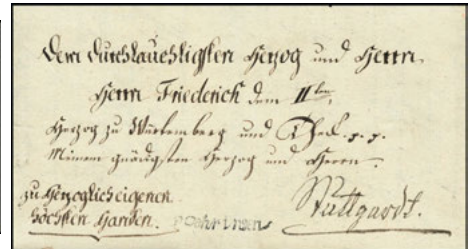 Dem Durchlauchtigsten Herzog und Herrn
Herrn Friederich dem II ten,
Herzog zu Würtemberg und Theck. p. p.
Meinem gnädigsten Herzog und Herrn.
zu Herzoglich eigenen
höchsten Handen.
Stuttgardt.